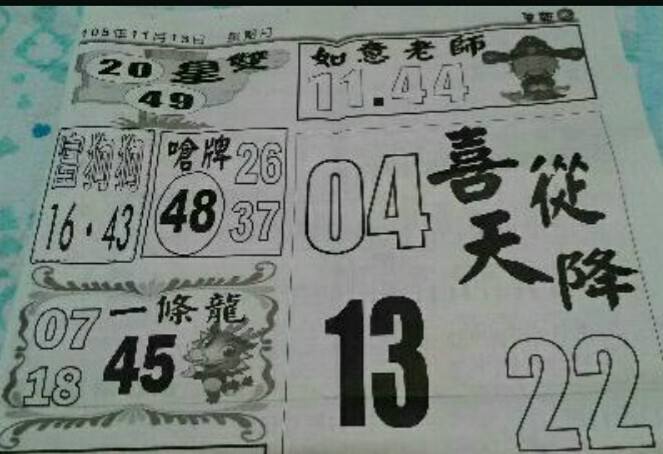 105年11月13日 星期日
20 雙星
49
如意老師
11.44
富狗狗
16.43
嗆牌
26
48
37
04
喜從天降
一條龍
07
45
18
13
22